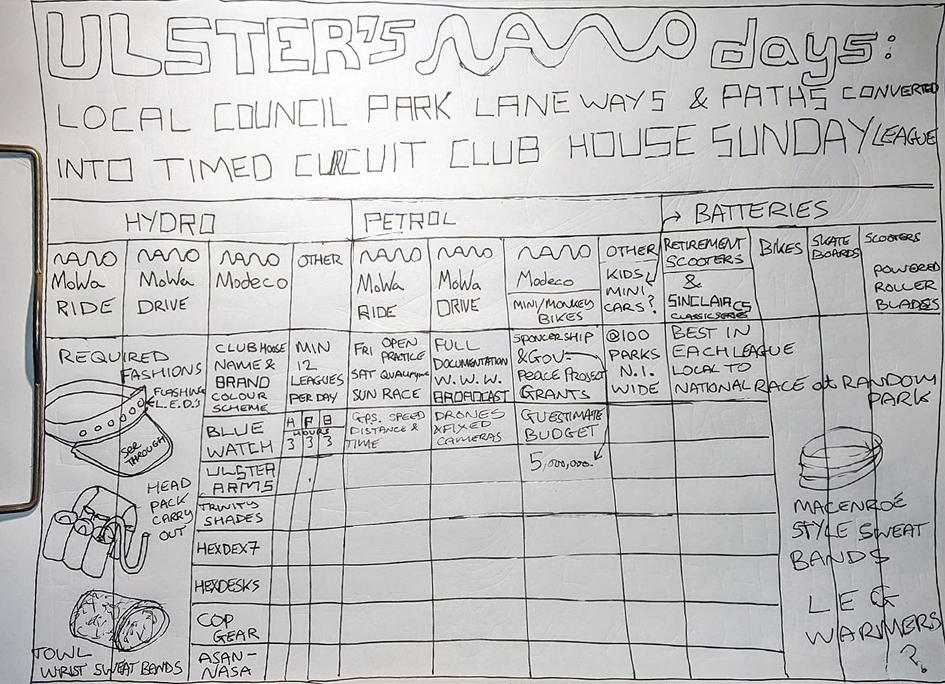 ULSTER'S NANO days:
LOCAL COUNCIL PARK LANEWAYS & PATHS CONVERTED
INTO TIMED CURCUIT CLUB HOUSE SUNDAY LEAGUE
HYDRO
PETROL
→ BATTERIES
NANO
MoWa
RIDE
NANO
MoWa
DRIVE
NANO
Modeco
OTHER
NANO
MoWa
RIDE
NANO
MoWa
DRIVE
NANO
Modeco
MINI/MONKEY
BIKES
OTHER
KIDS
MINI
CARS?
RETIREMENT
SCOOTERS
&
SINCLAIR C5
CLASSIC SERIES
BIKES
SKATE
BOARDS
SCOOTERS
POWERED
ROLLER
BLADES
REQUIRED
FASHIONS
FLASHING
L.E.D.'s
SEE
THROUGH
HEAD
PACK
CARRY
OUT
TOWL
WRIST SWEAT BANDS
CLUB HOUSE
NAME &
BRAND
COLOUR
SCHEME
MIN
12
LEAGUES
PER DAY
FRI OPEN
PRACTICE
SAT QUALIFYING
SUN RACE
FULL
DOCUMENTATION
W.W.W.
BROADCAST
SPONCERSHIP
& GOV-
PEACE PROJECT
GRANTS
@100
PARKS
N.I.
WIDE
BEST IN
EACH LEAGUE
LOCAL TO
NATIONAL RACE at RANDOM
PARK
BLUE
WATCH
H P B
HOURS
3 3 3
GPS, SPEED
DISTANCE &
TIME
DRONES
& FIXED
CAMERAS
GUESTIMATE
BUDGET
5,000,000.
ULSTER
ARMS
TRINITY
SHADES
HEXDEX7
HEXDESKS
COP
GEAR
ASAN-
NASA
MACENROÉ
STYLE SWEAT
BANDS
LEG
WARMERS
?